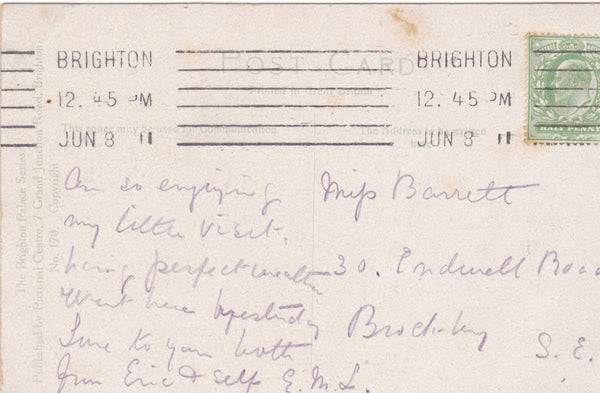 BRIGHTON
12. 45 PM
JUN 8 11
BRIGHTON
12. 45 PM
JUN 8 11
POST CARD
Printed in Great Britain
This space may be used for Communication
The Address
HALF PENNY
The Brighton Palace Series
Published by Pictorial Centre, 7 Grand Junction Road, Brighton
No. 170. Copyright
Am so enjoying
my little visit.
having perfect weather
Went here yesterday
Love to you both
from Eric & self E.M.L.
Miss Barrett
30. Endwell Road
Brockley
S.E.